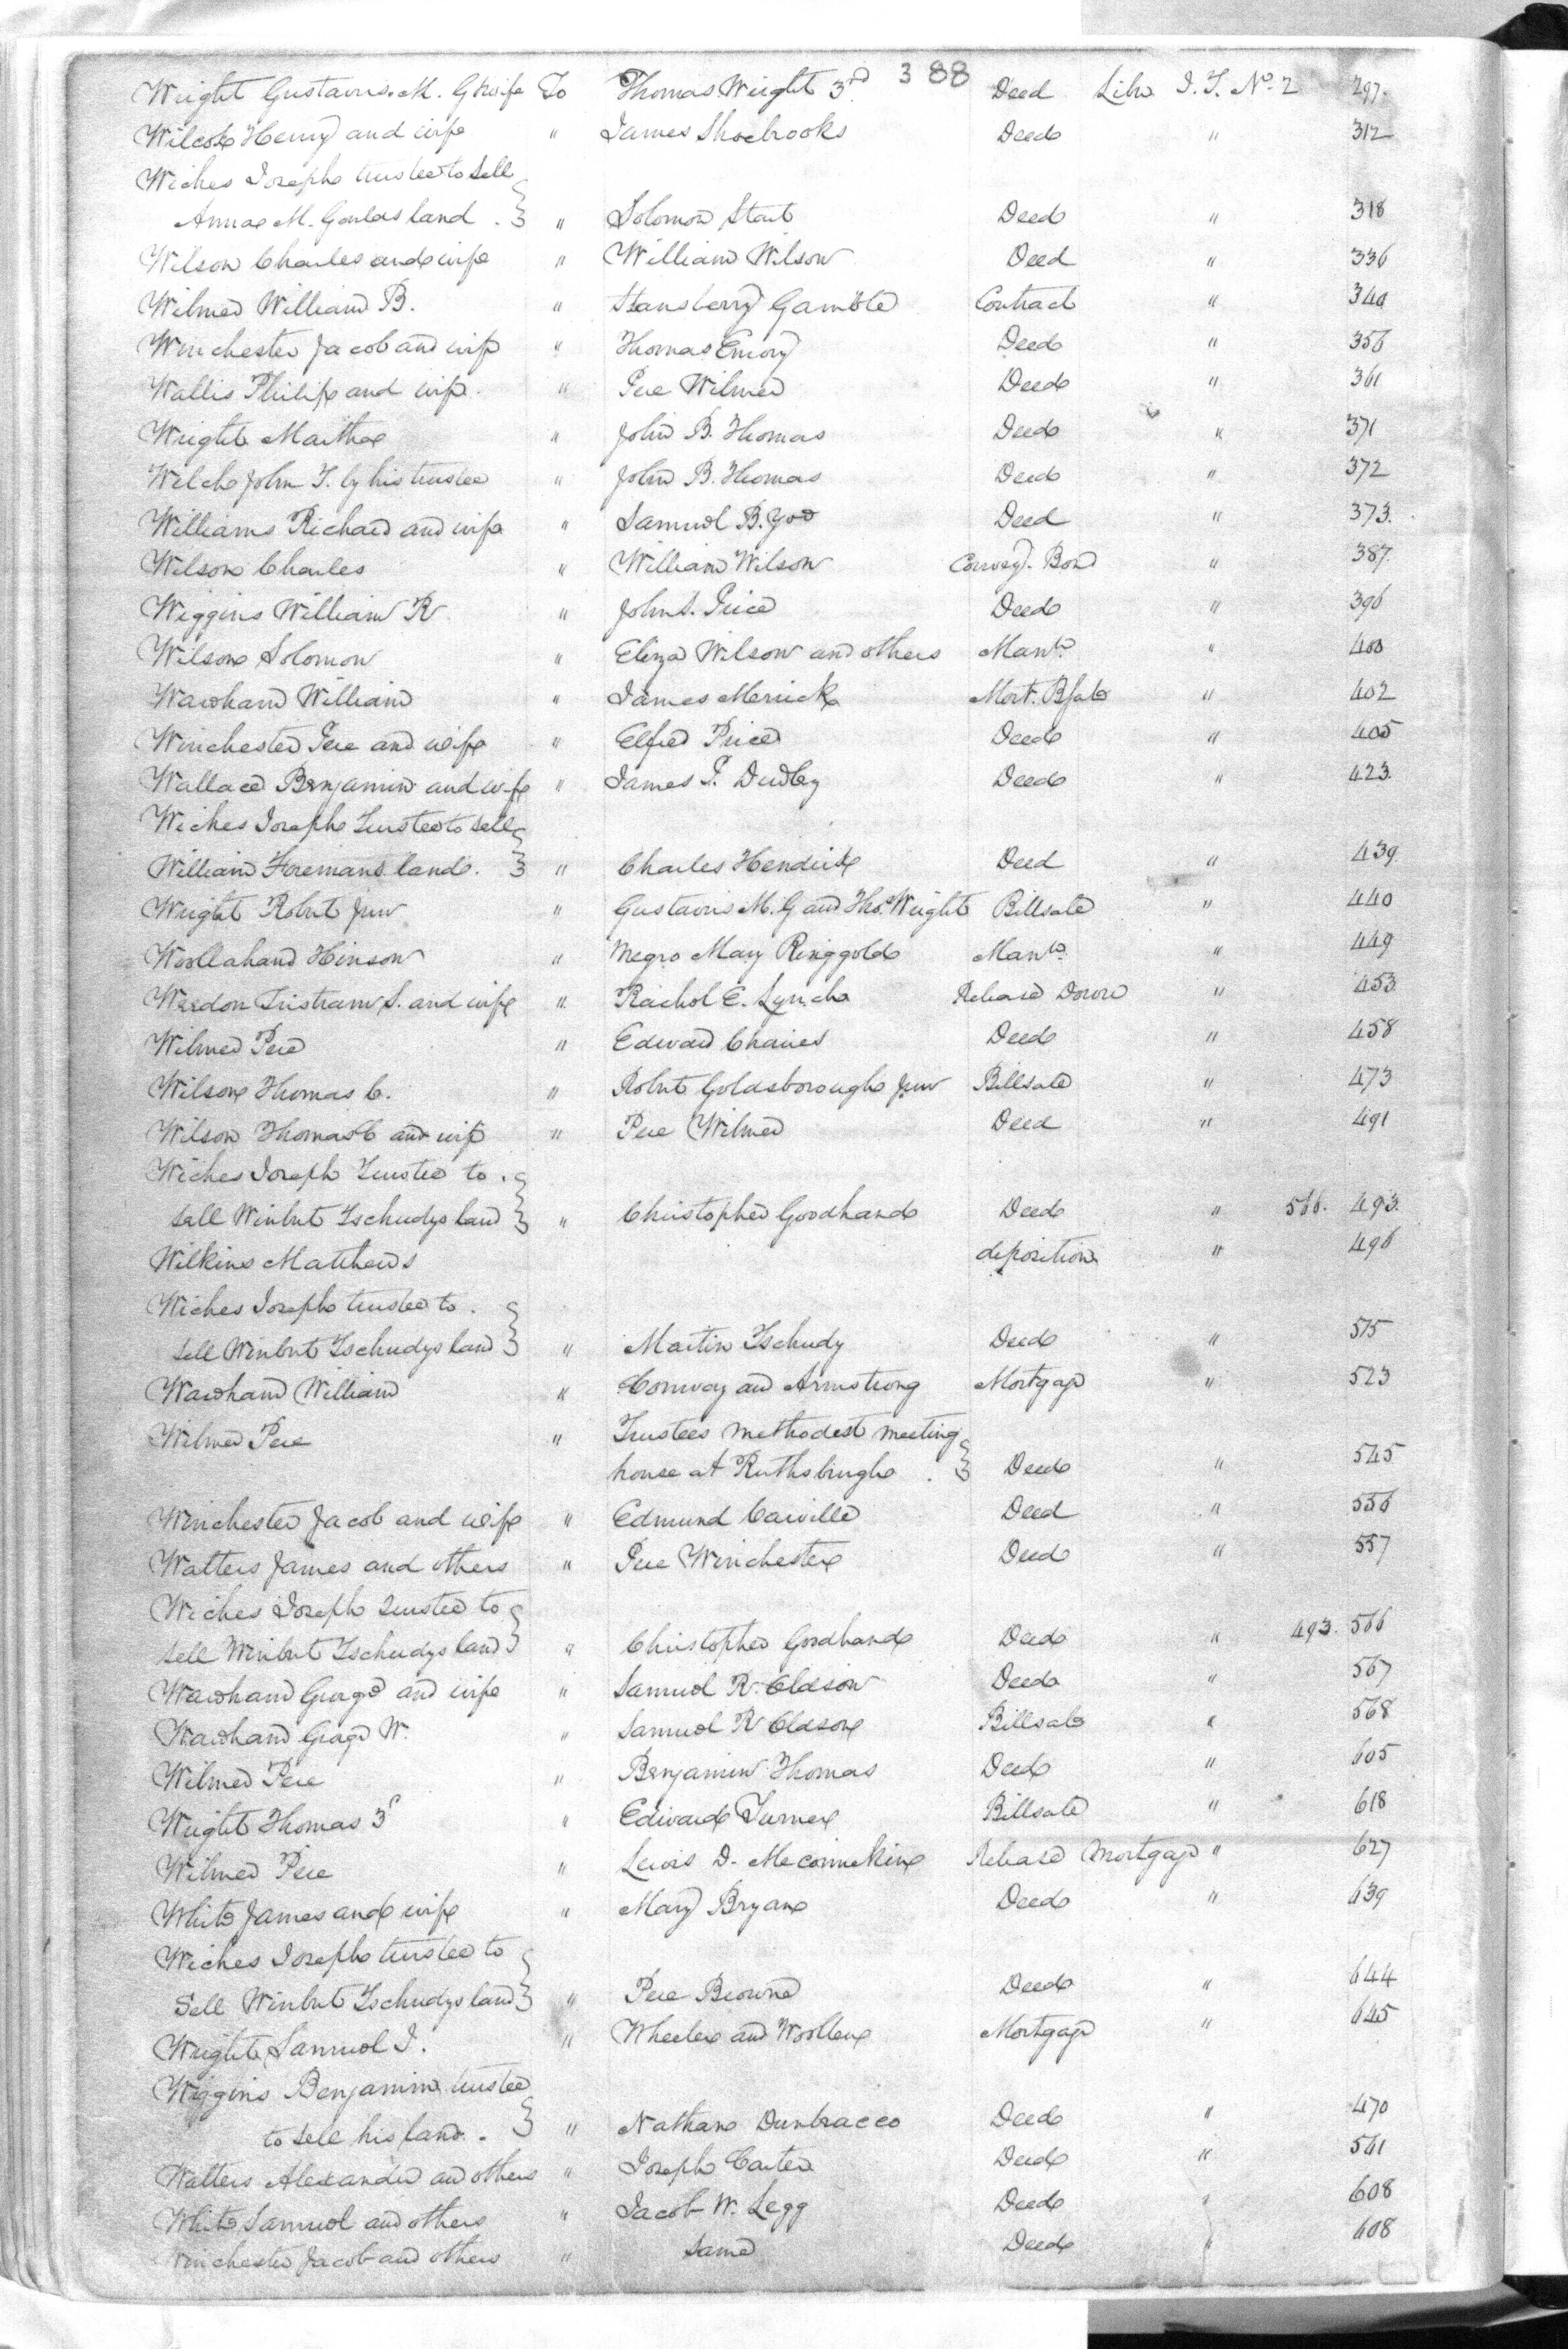 388
Wright Gustavus M. G & wife To Thomas Wright 3rd Deed Liber I. T. No. 2 297.
Wilcox Henry and wife " James Shoebrooks Deed " 312
Wickes Joseph trustee to sell
Anna M. Goulds land . } " Solomon Start Deed " 318
Wilson Charles and wife " William Wilson Deed " 336
Wilmer William B. " Stansberry Gamble Contract " 340
Winchester Jacob and wife " Thomas Emory Deed " 356
Wallis Philip and wife. " Pere Wilmer Deed " 361
Wright Martha " John B. Thomas Deed " 371
Welch John T. by his trustee " John B. Thomas Deed " 372
Williams Richard and wife " Samuel B. Deed " 373.
Wilson Charles " William Wilson Convey. Bond " 387.
Wiggins William R " John S. Price Deed " 396
Wilson Solomon " Eliza Wilson and others Mann. " 400
Wawham William " James Merrick Mort. Bsale " 402
Winchester Pere and wife " Elfred Price Deed " 405
Wallace Benjamin and wife " James P. Dudley Deed " 423.
Wickes Joseph Trustee to sell
William Foremans land. } " Charles Hendrix Deed " 439
Wright Robert Junr " Gustavus M. G and Thos. Wright Billsale " 440
Woollahand Hinson " Negro Mary Ringgold Mann. " 449
Weedon Tristram S. and wife " Rachel E. Lynch Release Dower " 453
Wilmer Pere " Edward Chaires Deed " 458
Wilson Thomas C. " Robert Goldsborough Junr Billsale " 473
Wilson Thomas C and wife " Pere Wilmer Deed " 491
Wickes Joseph Trustee to .
sell Winbert Tschudys land } " Christopher Goodhand Deed " 566. 493.
Wilkins Matthews deposition " 496
Wickes Joseph trustee to .
sell Winbert Tschudys land } " Martin Tschudy Deed " 515
Wawham William " Conway and Armstrong Mortgage " 523
Wilmer Pere " Trustees methodest meeting
house at Ruthsburgh . } Deed " 545
Winchester Jacob and wife " Edmund Carville Deed " 556
Watters James and others " Pere Winchester Deed " 557
Wickes Joseph trustee to
sell Winbert Tschudys land } " Christopher Goodhand Deed " 493. 566
Wawham George and wife " Samuel R. Oldson Deed " 567
Wawham George W. " Samuel R Oldson Billsale " 568
Wilmer Pere " Benjamin Thomas Deed " 605
Wright Thomas 3d " Edward Turner Billsale " 618
Wilmer Pere " Lewis D. Meconnekin Release Mortgage " 627
White James and wife " Mary Bryan Deed " 639
Wickes Joseph trustee to
Sell Winbert Tschudys land } " Pere Browne Deed " 644
Wright Samuel I. " Wheeler and Woollen Mortgage " 645
Wiggins Benjamin trustee
to sell his land . } " Nathan Dunbracco Deed " 470
Walters Alexander and others " Joseph Carter Deed " 541
White Samuel and others " Jacob W. Legg Deed " 608
Winchester Jacob and others " Same Deed " 608